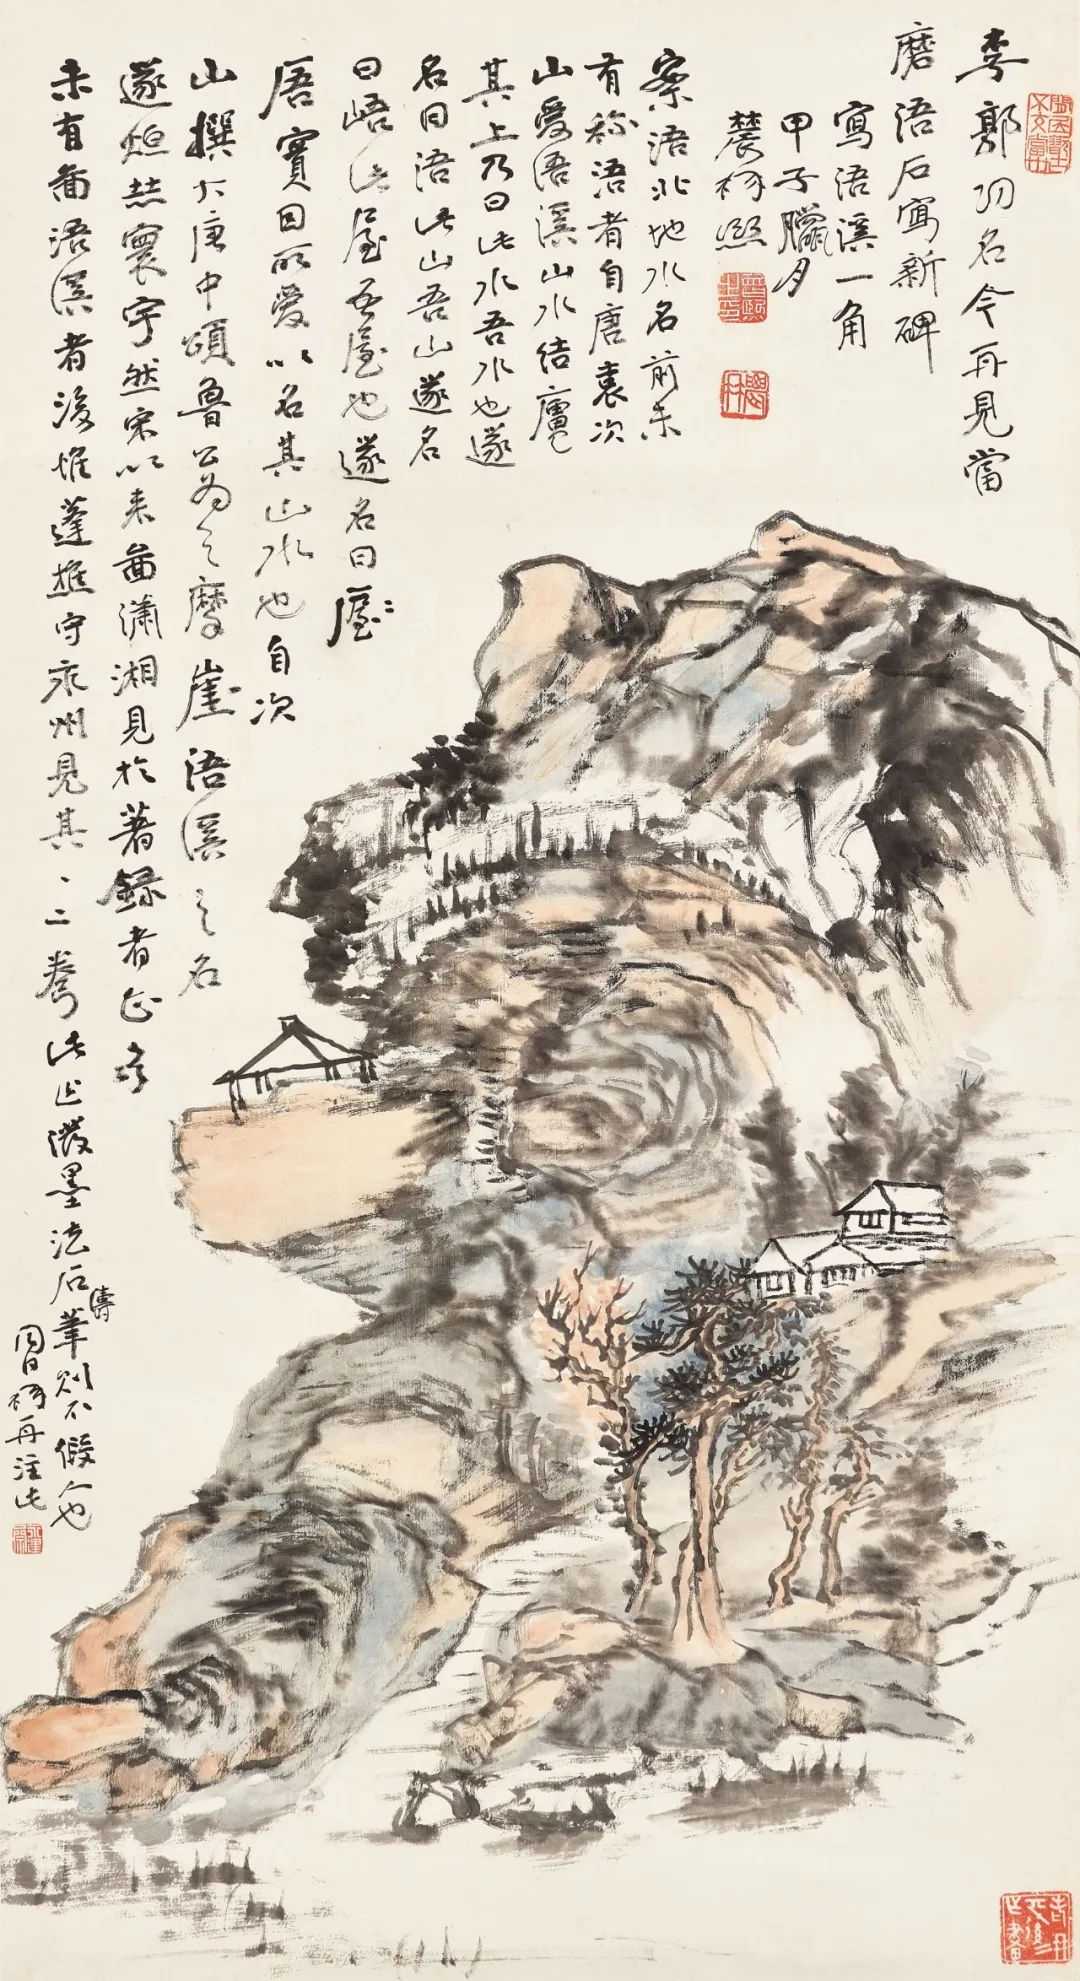 李郭功名今再見當
磨浯石寫新碑
寫浯溪一角
甲子臘月
農髯熙
案浯北地水名前未
有稱浯者自唐袁次
山愛浯溪山水結廬
其上乃曰此水吾水也遂
名曰浯此山吾山遂名
曰峿此吾也遂名曰
實因所愛以名其山水也自次
山撰大唐中頌魯公為之摩崖浯溪之名
遂烜赫寰宇然宋以來啚瀟湘見於著録者
未有啚浯溪者後惟蓬樵守永州見其一二卷此潑墨法石濤筆則不假也
同日髯再注此